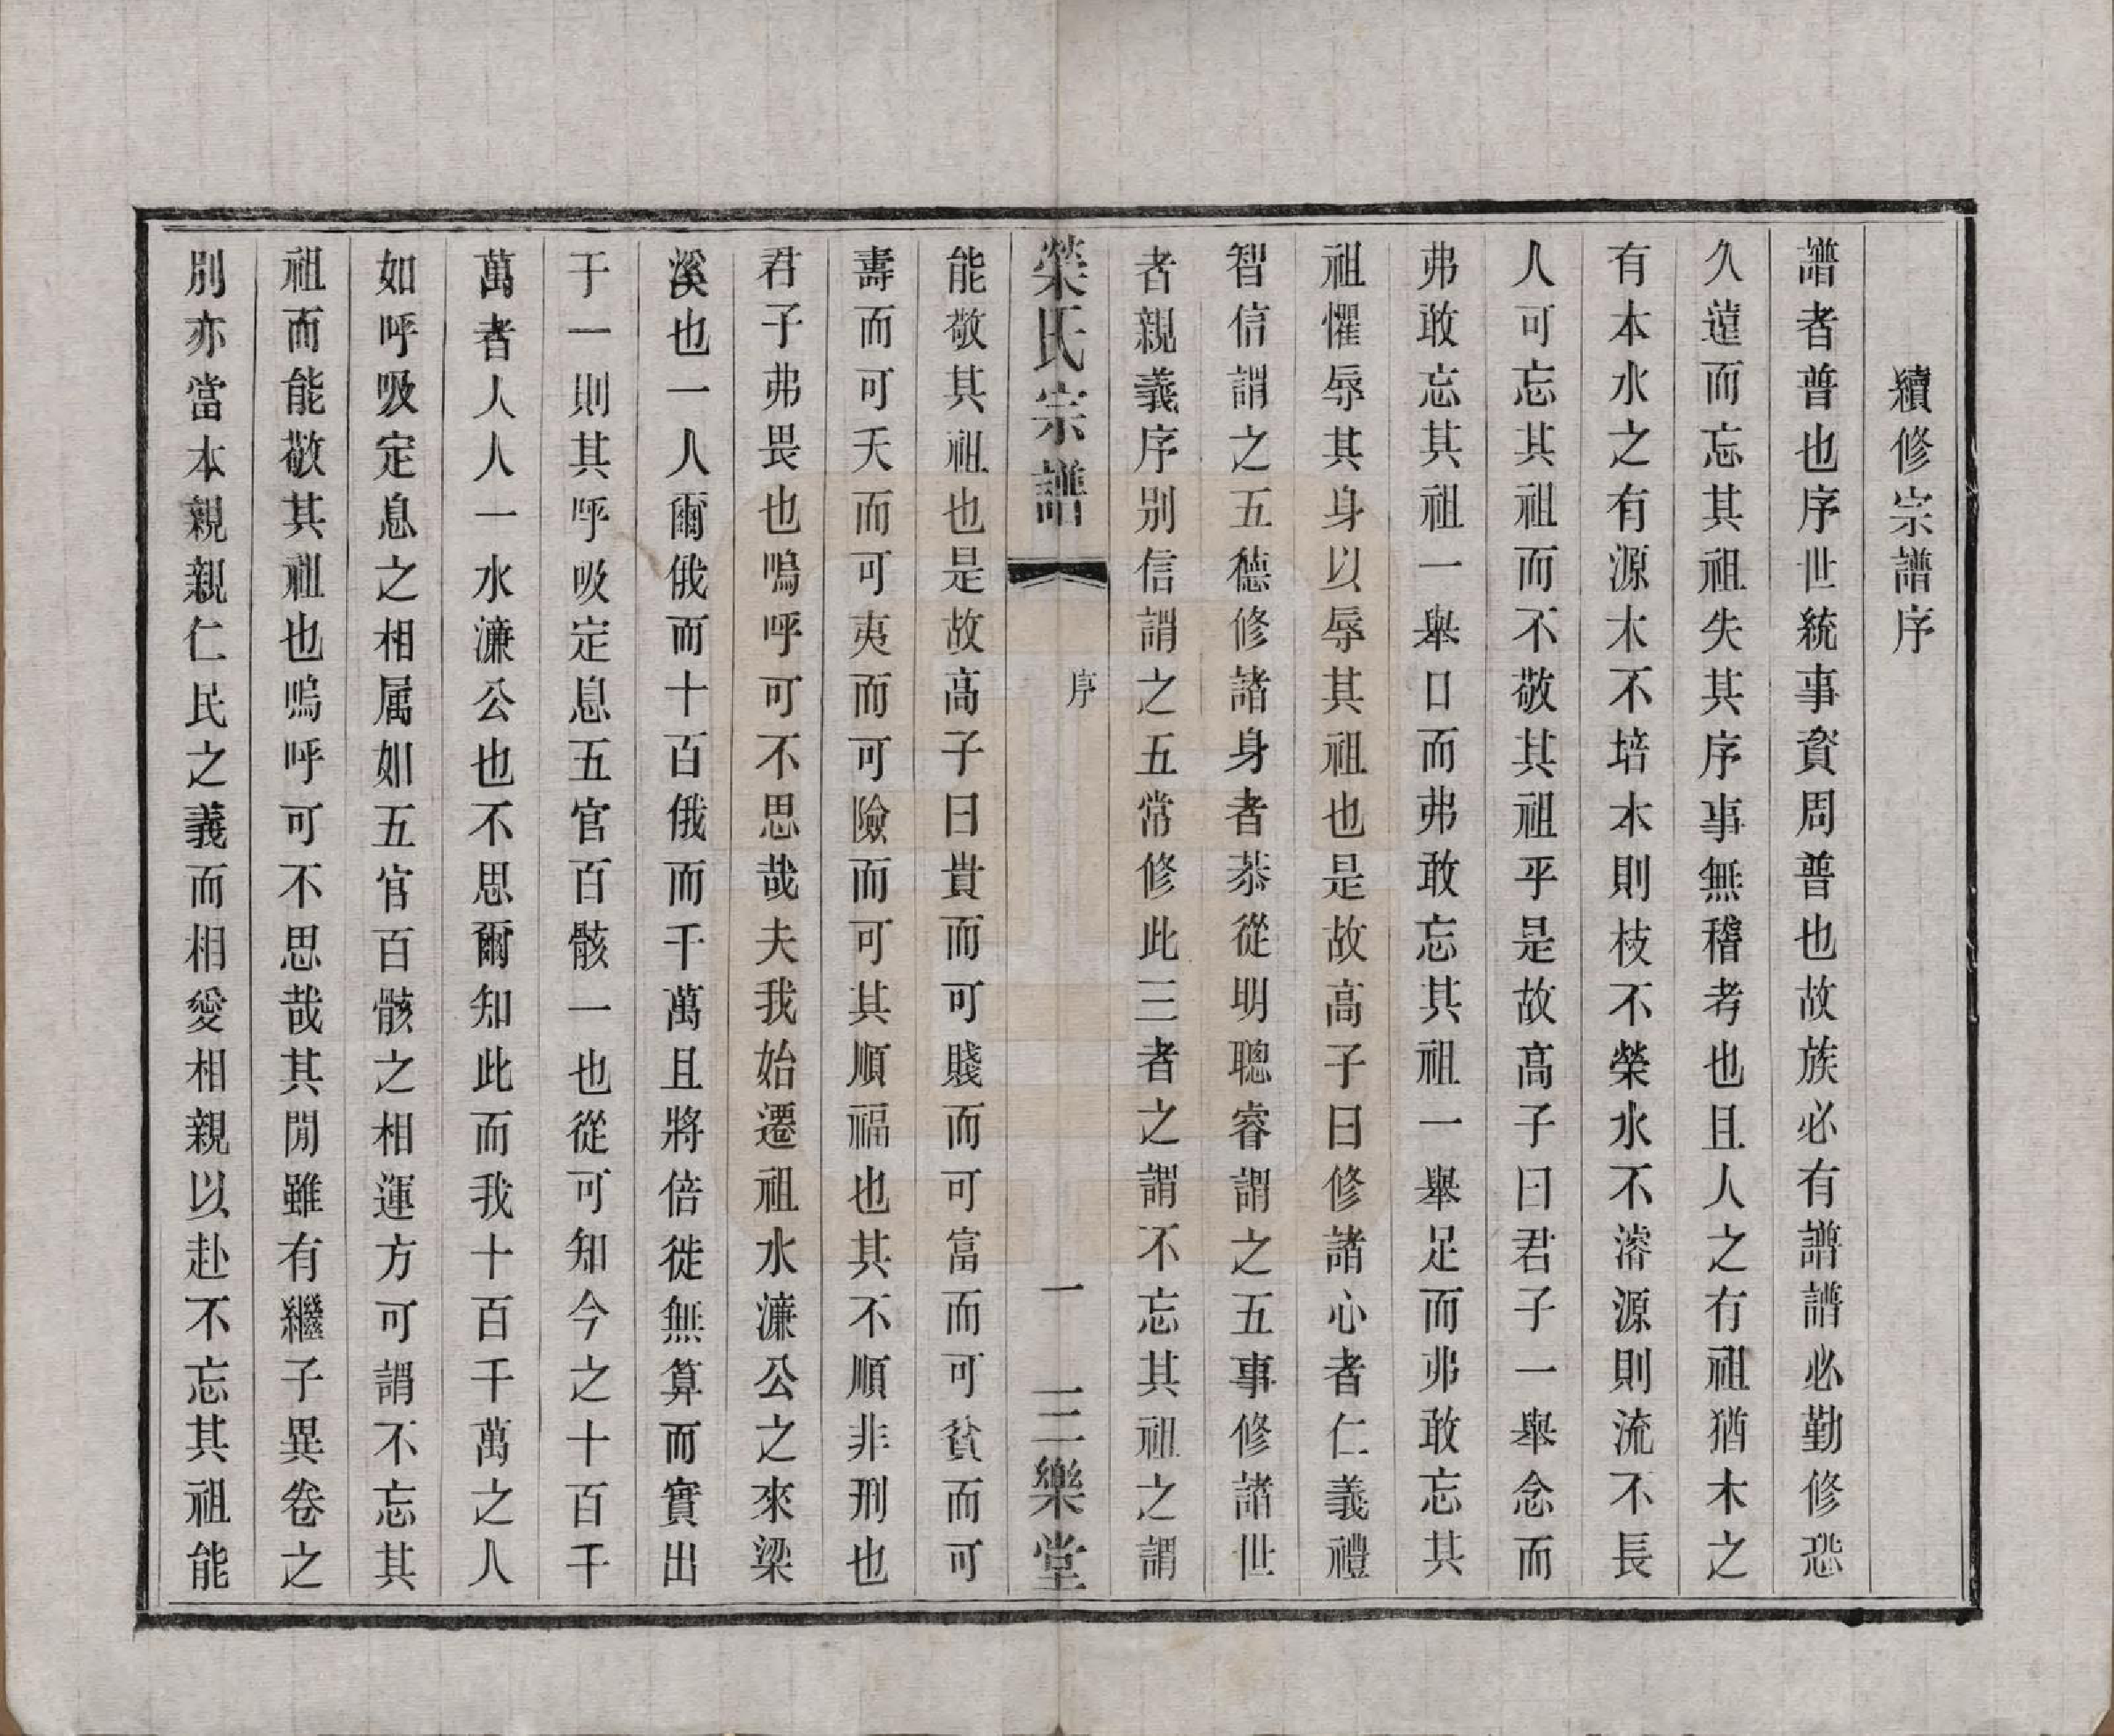 續修宗譜序
譜者普也序世統事資周普也故族必有譜譜必勤修恐
久遠而忘其祖失其序事無稽考也且人之有祖猶木之
有本水之有源木不培本則枝不榮水不濬源則流不長
人可忘其祖而不敬其祖乎是故高子曰君子一舉念而
弗敢忘其祖一舉口而弗敢忘其祖一舉足而弗敢忘其
祖懼辱其身以辱其祖也是故高子曰修諸心者仁義禮
智信謂之五德修諸身者恭從明聰睿謂之五事修諸世
者親義序別信謂之五常修此三者之謂不忘其祖之謂
榮氏宗譜
序
一
三樂堂
能敬其祖也是故高子曰貴而可賤而可富而可貧而可
壽而可夭而可夷而可險而可其順福也其不順非刑也
君子弗畏也嗚呼可不思哉夫我始遷祖水濂公之來梁
溪也一人爾俄而十百俄而千萬且將倍徙無算而實出
于一則其呼吸定息五官百骸一也從可知今之十百千
萬者人人一水濂公也不思爾知此而我十百千萬之人
如呼吸定息之相属如五官百骸之相運方可謂不忘其
祖而能敬其祖也嗚呼可不思哉其閒雖有繼子異卷之
別亦當本親親仁民之義而相愛相親以赴不忘其祖能